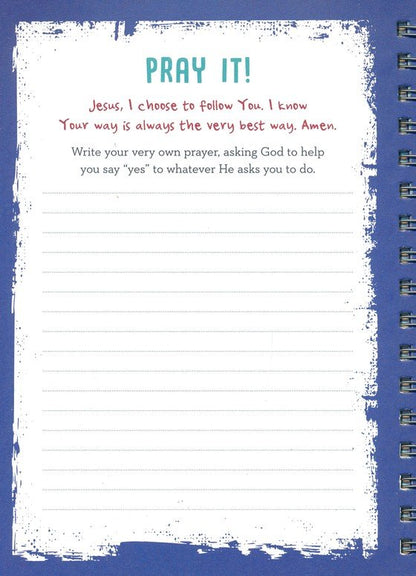 PRAY IT!
Jesus, I choose to follow You. I know
Your way is always the very best way. Amen.
Write your very own prayer, asking God to help
you say "yes" to whatever He asks you to do.